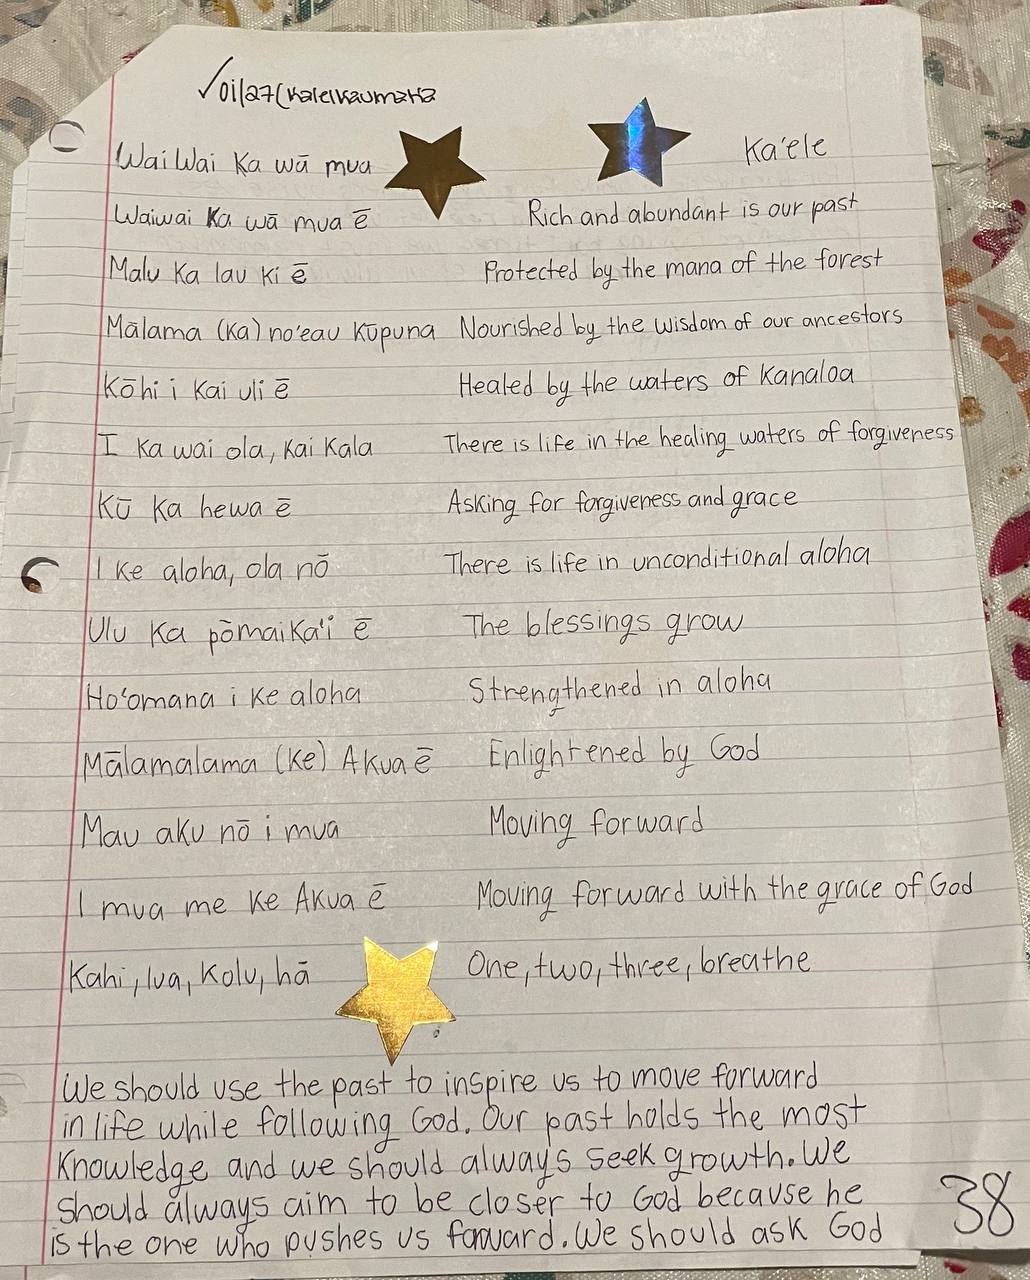 ✓01/27(Kaleikaumaka
WaiWai Ka wā mua
Ka'ele
Waiwai Ka wā mua ē Rich and abundant is our past
Malu Ka lau Ki ē Protected by the mana of the forest
Mālama (Ka) no'eau Kūpuna Nourished by the wisdom of our ancestors
Kōhi i Kai uli ē Healed by the waters of Kanaloa
I Ka wai ola, Kai Kala There is life in the healing waters of forgiveness
Kū Ka hewa ē Asking for forgiveness and grace
I Ke aloha, ola nō There is life in unconditional aloha
Ulu Ka pōmaiKa'i ē The blessings grow
Ho'omana i Ke aloha Strengthened in aloha
Mālamalama (Ke) Akua ē Enlightened by God
Mau aku nō i mua Moving forward
I mua me Ke Akua ē Moving forward with the grace of God
Kahi, lua, Kolu, hā One, two, three, breathe
We should use the past to inspire us to move forward
in life while following God. Our past holds the most
Knowledge and we should always seek growth. We
should always aim to be closer to God because he
is the one who pushes us forward. We should ask God
38